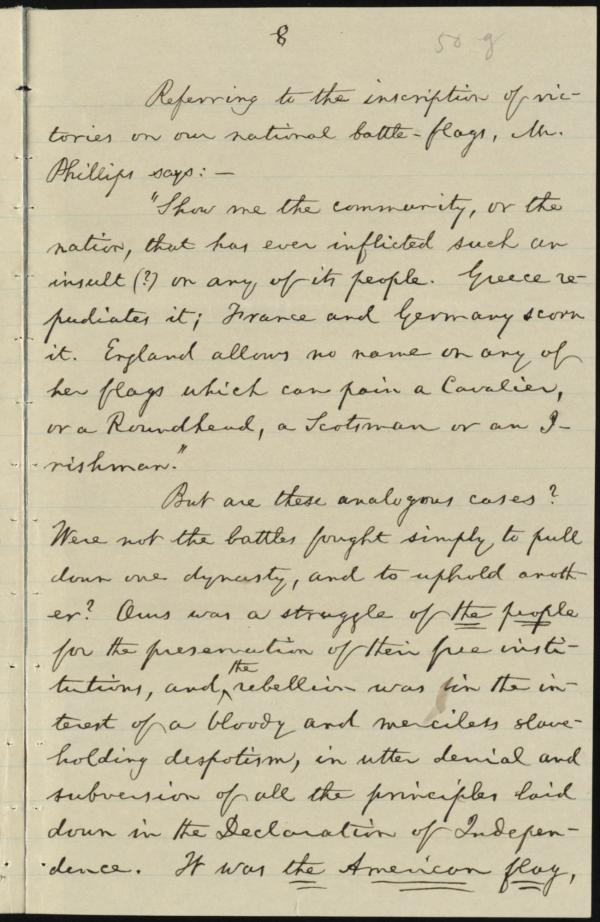 8
50 g
Referring to the inscription of vic-
tories on our national battle-flags, Mr.
Phillips says: —
"Show me the community, or the
nation, that has ever inflicted such an
insult (?) on any of its people. Greece re-
pudiates it; France and Germany scorn
it. England allows no name on any of
her flags which can pain a Cavalier,
or a Roundhead, a Scotsman or an I-
rishman."
But are these analogous cases?
Were not the battles fought simply to pull
down one dynasty, and to uphold anoth-
er? Ours was a struggle of the people
for the preservation of their free insti-
tutions, and the rebellion was in the in-
terest of a bloody and merciless slave-
holding despotism, in utter denial and
subversion of all the principles laid
down in the Declaration of Indepen-
dence. It was the American flag,